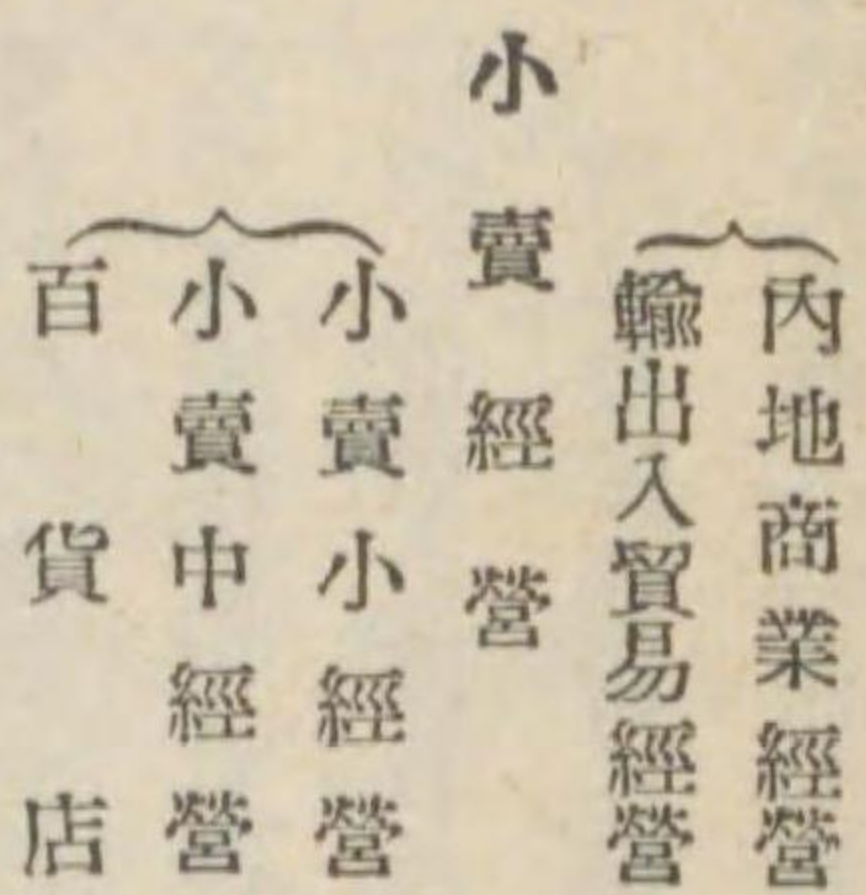 內地商業經營
輸出入貿易經營
小賣經營
小賣小經營
小賣中經營
百貨店